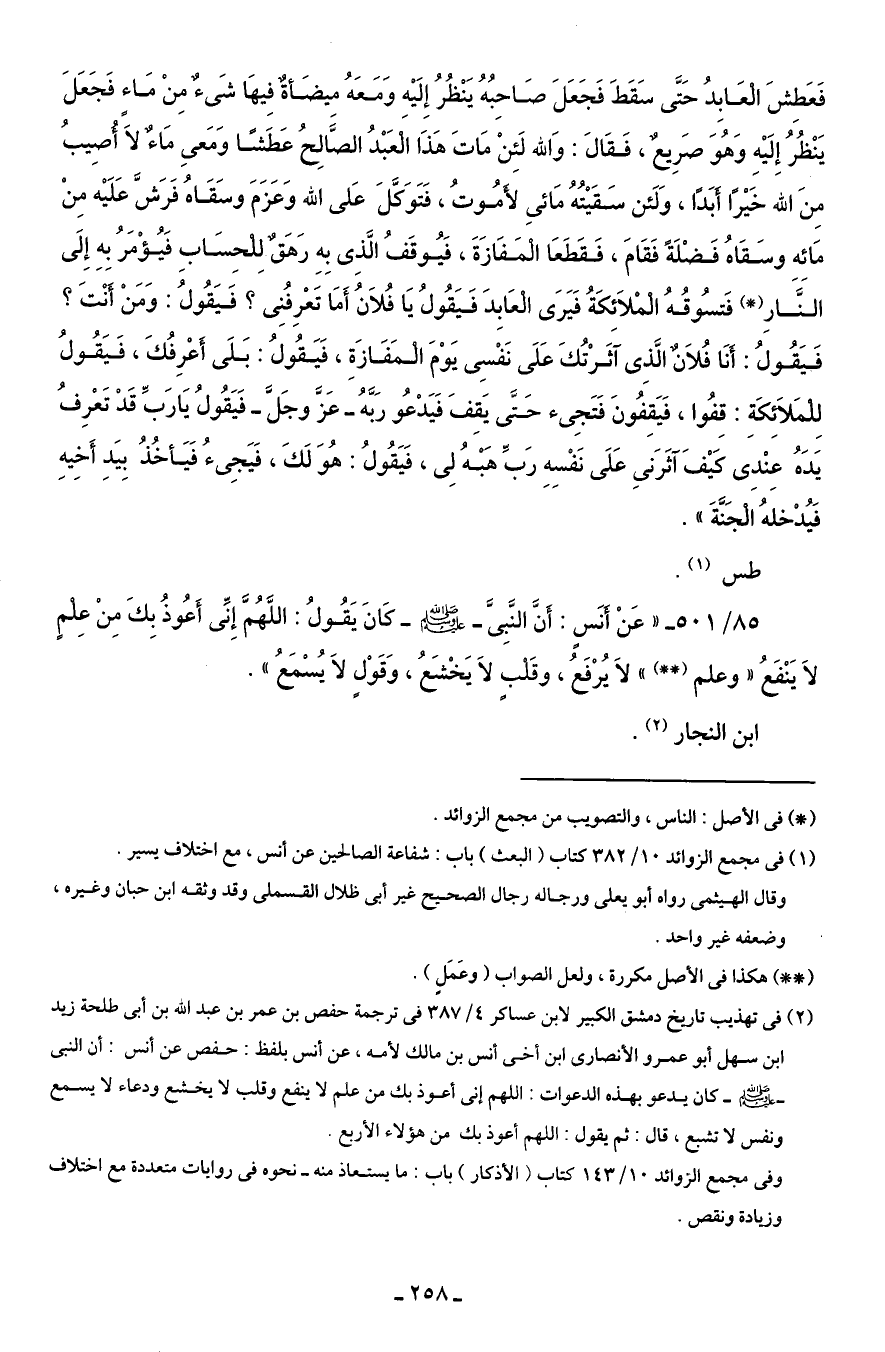 فَعَطِشَ الْعَابِدُ حَتَّى سَقَطَ فَجَعَلَ صَاحِبُهُ يَنْظُرُ إِلَيْهِ وَمَعَهُ مِيضَأَةٌ فِيهَا شَىءٌ مِنْ مَاءٍ فَجَعَلَ
يَنْظُرُ إِلَيْهِ وَهُوَ صَرِيعٌ ، فَقَالَ : وَاللهِ لَئِنْ مَاتَ هَذَا الْعَبْدُ الصَّالِحُ عَطَشًا وَمَعِى مَاءٌ لاَ أُصِيبُ
مِنَ اللهِ خَيْرًا أَبَدًا ، وَلَئِن سَقَيْتُهُ مَائِى لأَمُوتُ ، فَتَوَكَّلَ عَلَى اللهِ وَعَزَمَ وسَقَاهُ فَرَشَّ عَلَيْهِ مِنْ
مَائِهِ وسَقَاهُ فَضْلَهُ فَقَامَ ، فَقَطَعَا الْمَفَازَةَ ، فَيُوقَفُ الَّذِى بِهِ رَهَقٌ لِلْحِسَابِ فَيُؤْمَرُ بِهِ إِلَى
النَّارِ(*) فَتَسُوقُهُ الْمَلاَئِكَةُ فَيَرَى الْعَابِدَ فَيَقُولُ يَا فُلاَنُ أَمَا تَعْرِفُنِى ؟ فَيَقُولُ : وَمَنْ أَنْتَ ؟
فَيَقُولُ : أَنَا فُلاَنٌ الَّذِى آثَرْتُكَ عَلَى نَفْسِى يَوْمَ الْمَفَازَةِ ، فَيَقُولُ : بَلَى أَعْرِفُكَ ، فَيَقُولُ
لِلْمَلاَئِكَةِ : قِفُوا ، فَيَقِفُونَ فَتَجِىء حَتَّى يَقِفَ فَيَدْعُو رَبَّهُ ـ عَزَّ وجَلَّ ـ فَيَقُولُ يَارَبِّ قَدْ تَعْرِفُ
يَدَهُ عِنْدِى كَيْفَ آثَرَنِى عَلَى نَفْسِهِ رَبِّ هَبْهُ لِى ، فَيَقُولُ : هُوَ لَكَ ، فَيَجِىءُ فَيَأخُذُ بِيَدِ أَخِيهِ
فَيُدْخِلهُ الْجَنَّةَ » .
طس (١) .
٨٥/ ٥٠١ـ « عَنْ أَنَسٍ : أَنَّ النَّبِىَّ ـ ﷺ ـ كَانَ يَقُولُ : اللَّهُمَّ إِنِّى أَعُوذُ بِكَ مِنْ عِلْمٍ
لاَ يَنْفَعُ « وعلم (**) » لاَ يُرْفَعُ ، وقَلْبٍ لاَ يَخْشَعُ ، وَقَوْلٍ لاَ يُسْمَعُ » .
ابن النجار (٢) .
(*) فى الأصل : الناس ، والتصويب من مجمع الزوائد .
(١) فى مجمع الزوائد ١٠/ ٣٨٢ كتاب ( البعث ) باب : شفاعة الصالحين عن أنس ، مع اختلاف يسير .
وقال الهيثمى رواه أبو يعلى ورجاله رجال الصحيح غير أبى ظلال القسملى وقد وثقه ابن حبان وغيره ،
وضعفه غير واحد .
(**) هكذا فى الأصل مكررة ، ولعل الصواب ( وعَمَلٍ ) .
(٢) فى تهذيب تاريخ دمشق الكبير لابن عساكر ٤/ ٣٨٧ فى ترجمة حفص بن عمر بن عبد الله بن أبى طلحة زيد
ابن سهل أبو عمرو الأنصارى ابن أخى أنس بن مالك لأمه ، عن أنس بلفظ : حفص عن أنس : أن النبى
ـ ﷺ ـ كان يدعو بهذه الدعوات : اللهم إنى أعوذ بك من علم لا ينفع وقلب لا يخشع ودعاء لا يسمع
ونفس لا تشبع ، قال : ثم يقول : اللهم أعوذ بك من هؤلاء الأربع .
وفى مجمع الزوائد ١٠/ ١٤٣ كتاب ( الأذكار ) باب : ما يستعاذ منه ـ نحوه فى روايات متعددة مع اختلاف
وزيادة ونقص .
ـ ٢٥٨ ـ